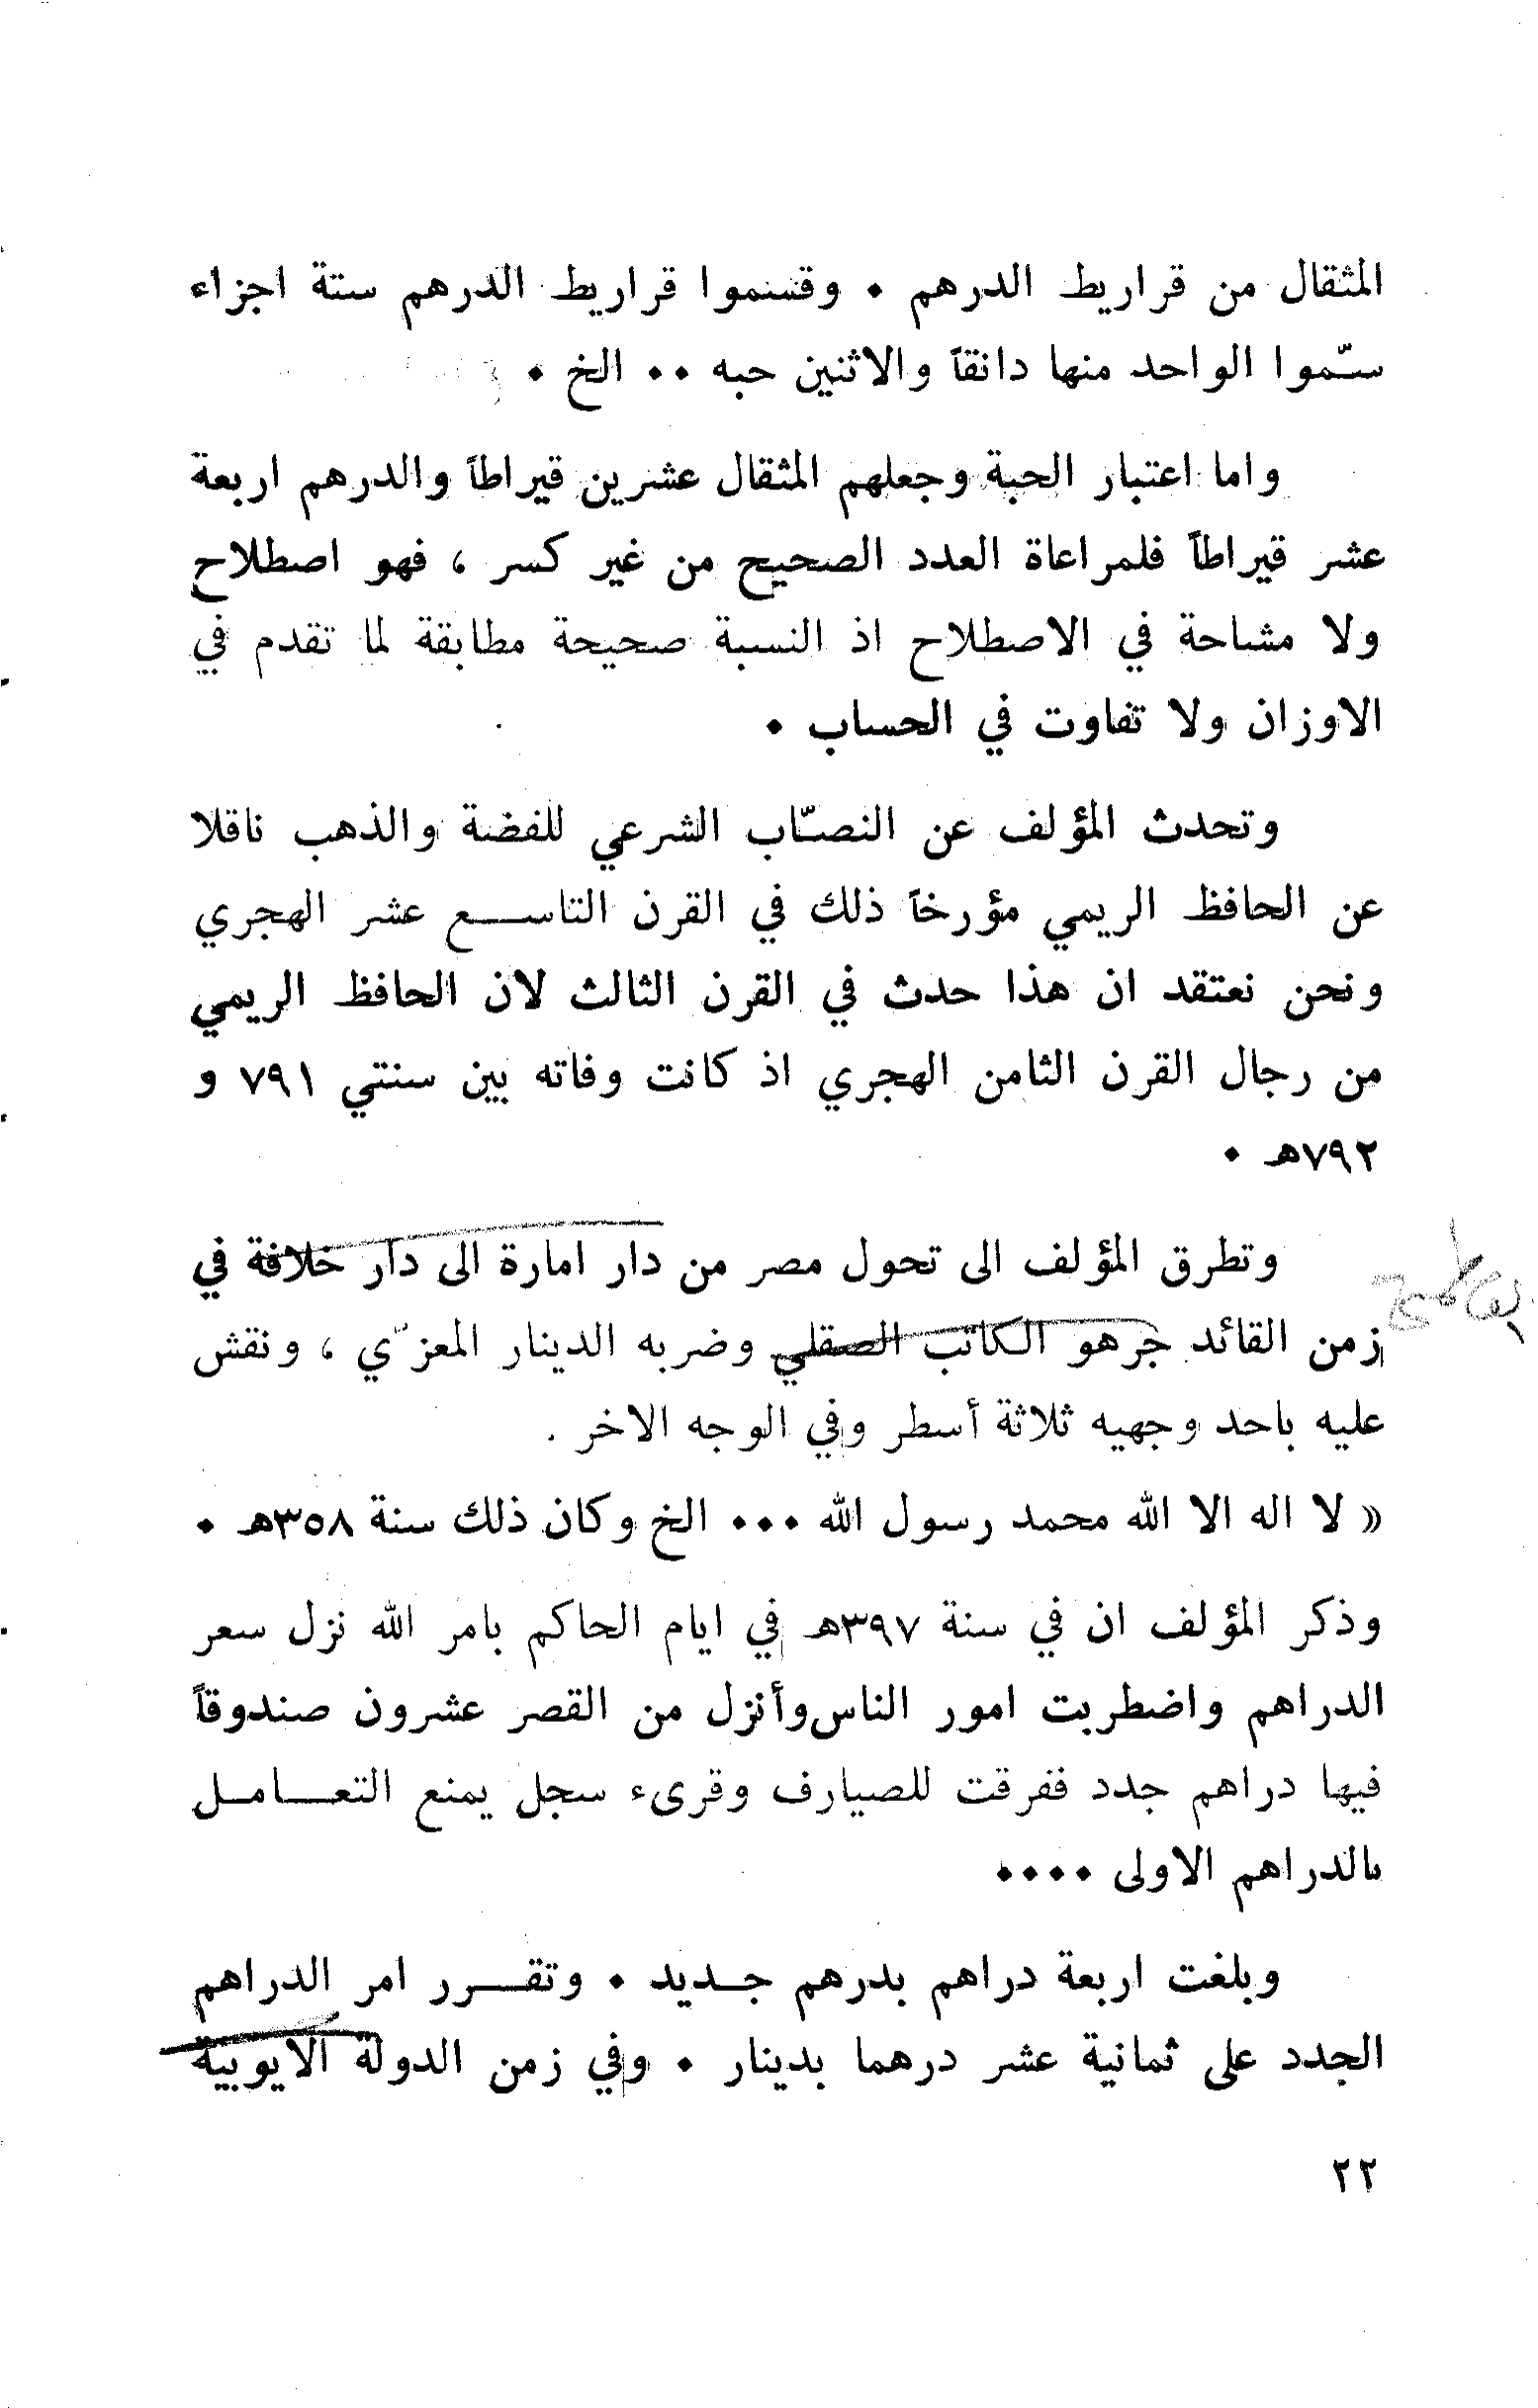 المثقال من قراريط الدرهم ٠ وقسموا قراريط الدرهم ستة اجزاء
سمّوا الواحد منها دانقاً والاثنين حبه ٠٠ الخ ٠
واما اعتبار الحبة وجعلهم المثقال عشرين قيراطاً والدرهم اربعة
عشر قيراطاً فلمراعاة العدد الصحيح من غير كسر ، فهو اصطلاح
ولا مشاحة في الاصطلاح اذ النسبة صحيحة مطابقة لما تقدم في
الاوزان ولا تفاوت في الحساب ٠
وتحدث المؤلف عن النصّاب الشرعي للفضة والذهب ناقلا
عن الحافظ الريمي مؤرخاً ذلك في القرن التاسع عشر الهجري
ونحن نعتقد ان هذا حدث في القرن الثالث لان الحافظ الريمي
من رجال القرن الثامن الهجري اذ كانت وفاته بين سنتي ٧٩١ و
٧٩٢هـ ٠
وتطرق المؤلف الى تحول مصر من دار امارة الى دار خلافة في
زمن القائد جرهو الكاتب الصقلي وضربه الدينار المعزّي ، ونقش
عليه باحد وجهيه ثلاثة أسطر وفي الوجه الاخر .
« لا اله الا الله محمد رسول الله ٠٠٠ الخ وكان ذلك سنة ٣٥٨هـ ٠
وذكر المؤلف ان في سنة ٣٩٧هـ في ايام الحاكم بامر الله نزل سعر
الدراهم واضطربت امور الناس وأنزل من القصر عشرون صندوقاً
فيها دراهم جدد ففرقت للصيارف وقرىء سجل يمنع التعامل
بالدراهم الاولى ٠٠٠٠
وبلغت اربعة دراهم بدرهم جديد ٠ وتقرر امر الدراهم
الجدد على ثمانية عشر درهما بدينار ٠ وفي زمن الدولة الايوبية
٢٢